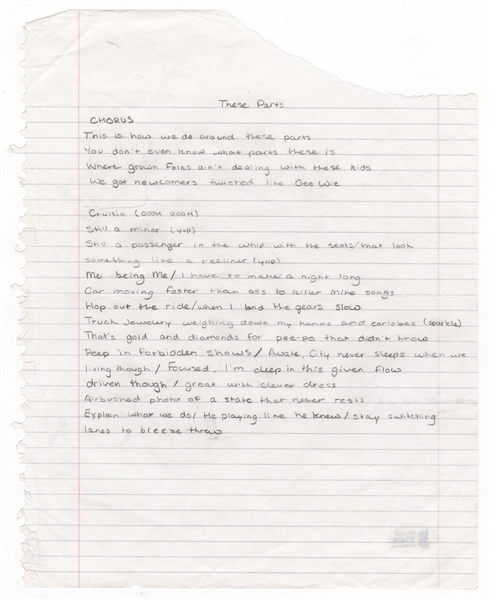 These Parts
CHORUS
This is how we do around these parts
You don't even know what parts these is
Where grown folks ain't dealing with these kids
We got newcomers twisted like Gee Wiz
Cruisin (OOOH OOOH)
Still a minor (yup)
Still a passenger in the whip with the seats/that look
something like a recliner (yup)
Me being Me/ I have to make a night long
Car moving faster than ass to killer mine songs
Hop out the ride/when I land the gears slow
Truck Jewelery weighing down my hands and earlobes (sparkle)
That's gold and diamonds for pee-po that didn't know
Deep in forbidden shows/ Awake, City never sleeps when we
living though/ Focused, I'm deep in this given flow
driven though/ great with clever dress
Airbushed photo of a state that never rests
Explain what we do/ He playing like he knew/ stay switching
lanes to breeze threw